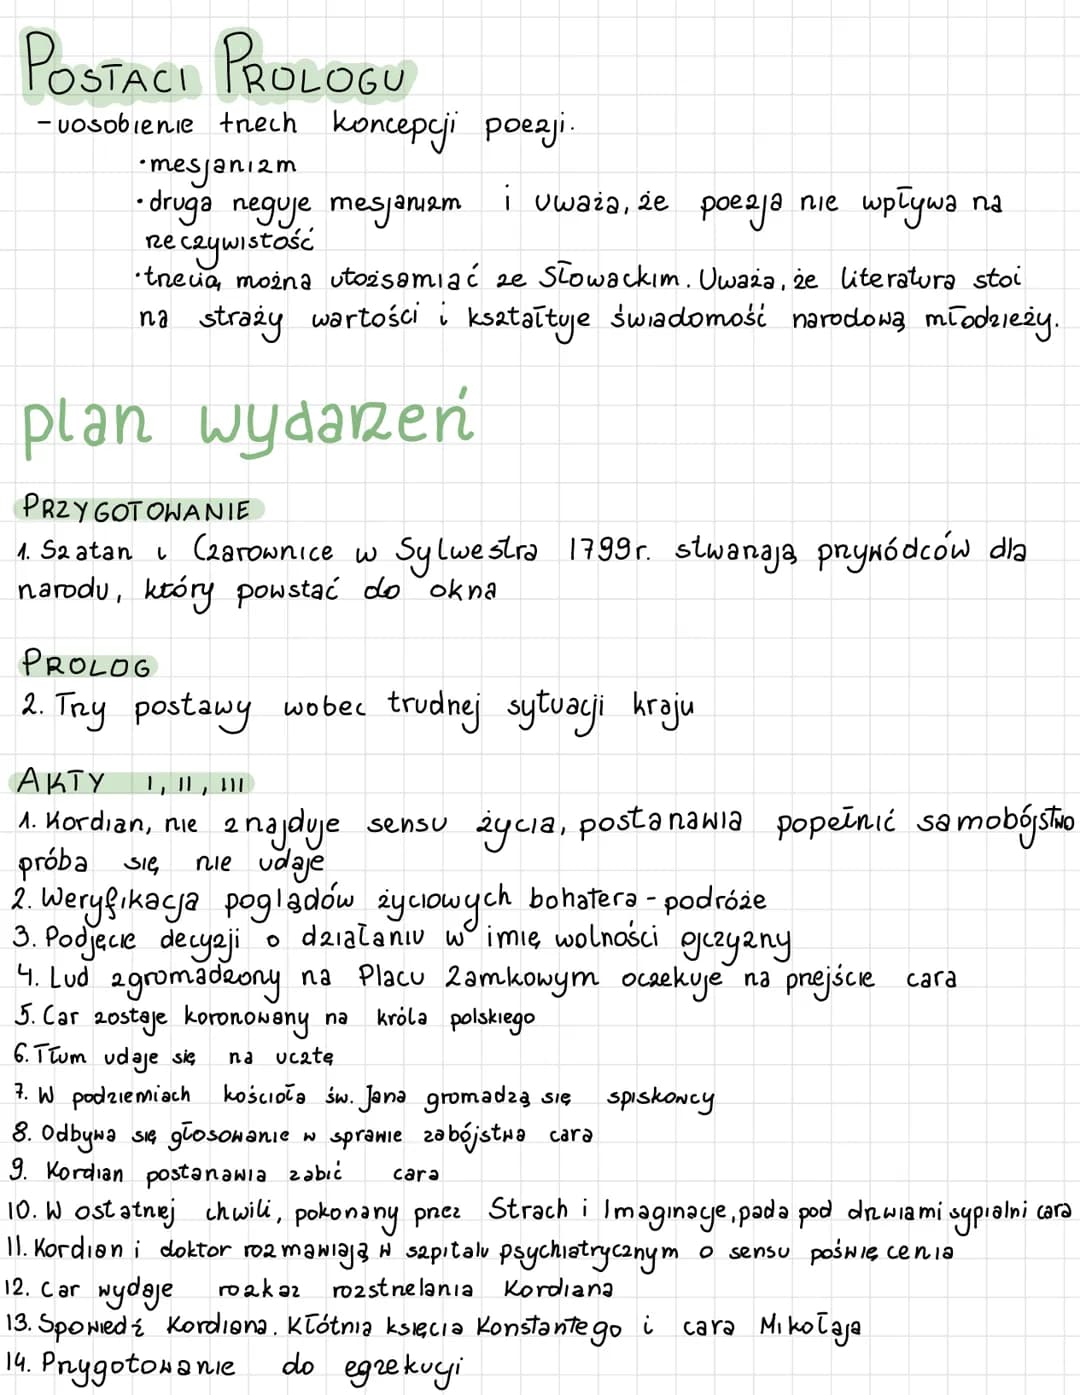 POSTACI PROLOGU
- uosobienie trzech koncepcji poezji.
· mesjanizm
· druga neguje mesjanizm i uważa, że poezja nie wpływa na
rzeczywistość
· trzecią można utożsamiać ze Słowackim. Uważa, że literatura stoi
na straży wartości i kształtuje świadomość narodową młodzieży.
plan wydarzeń
PRZYGOTOWANIE
1. Szatan i Czarownice w Sylwestra 1799r. stwarzają przywódców dla
narodu, który powstać do okna
PROLOG
2. Trzy postawy wobec trudnej sytuacji kraju
AKTY I, II, III
1. Kordian, nie znajduje sensu życia, postanawia popełnić samobójstwo
próba się nie udaje
2. Weryfikacja poglądów życiowych bohatera - podróże
3. Podjęcie decyzji o działaniu w imię wolności ojczyzny
4. Lud zgromadzony na Placu Zamkowym oczekuje na przejście cara
5. Car zostaje koronowany na króla polskiego
6. Tłum udaje się na ucztę
7. W podziemiach kościoła św. Jana gromadzą się spiskowcy
8. Odbywa się głosowanie w sprawie zabójstwa cara
9. Kordian postanawia zabić cara
10. W ostatnej chwili, pokonany przez Strach i Imaginacje, pada pod drzwiami sypialni cara
11. Kordian i doktor rozmawiają w szpitalu psychiatrycznym o sensu poświęcenia
12. Car wydaje rozkaz rozstrzelania Kordiana
13. Spowiedź Kordiana. Kłótnia księcia Konstantego i cara Mikołaja
14. Przygotowanie do egzekucji